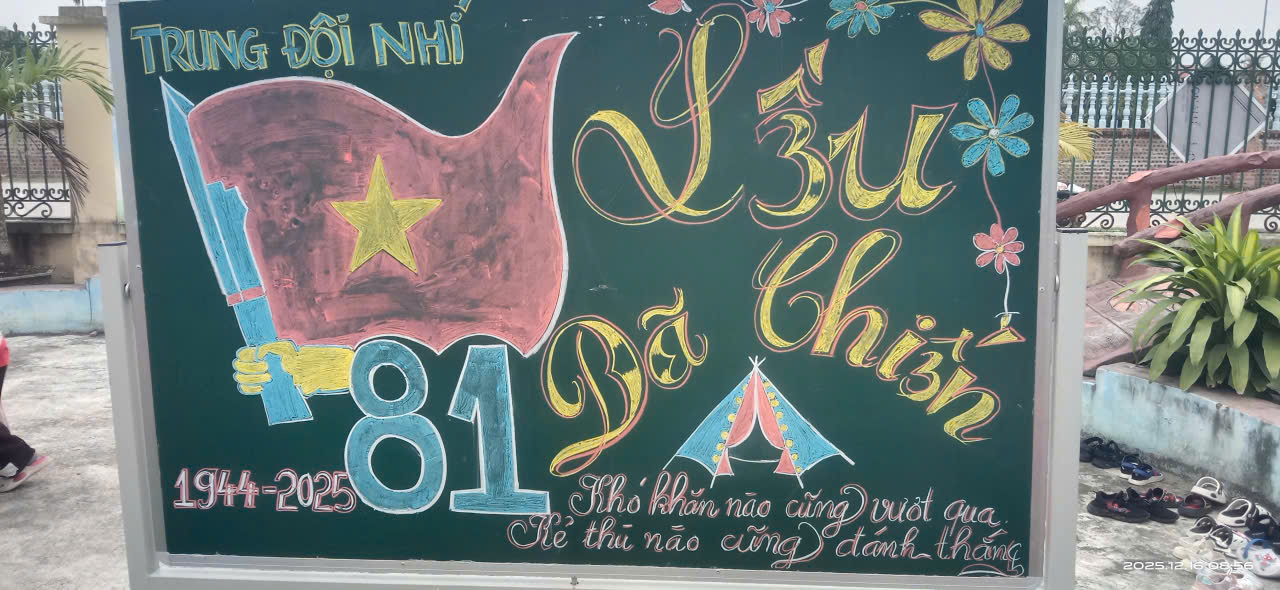 TRUNG ĐỘI NHÍ
Lều
Dã Chiến
81
1944-2025
Khó khăn nào cũng vượt qua.
Kẻ thù nào cũng đánh thắng
2025.12.16 08:56